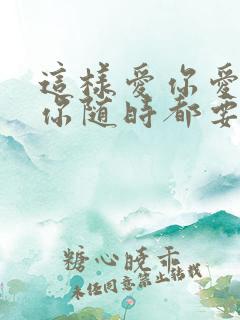 這樣愛你愛
你隨時都要
糖心曉乖
未经同意禁止转载